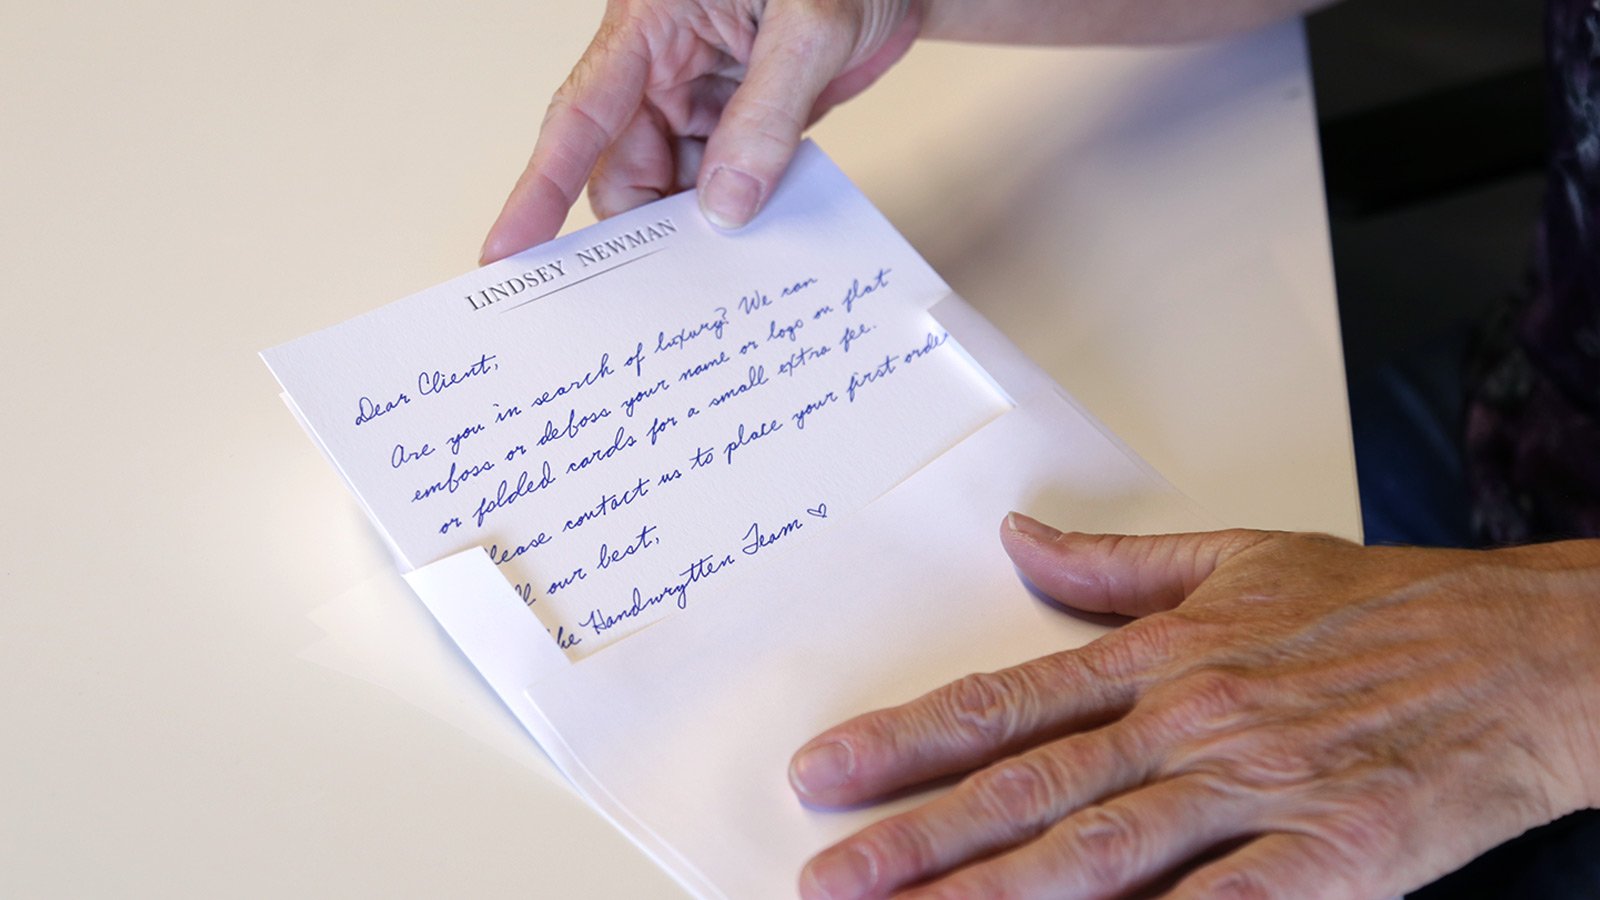 LINDSEY NEWMAN
Dear Client,
Are you in search of luxury? We can
emboss or deboss your name or logo on flat
or folded cards for a small extra fee.
lease contact us to place your first order
ll our best,
he Handwrytten Team ♡